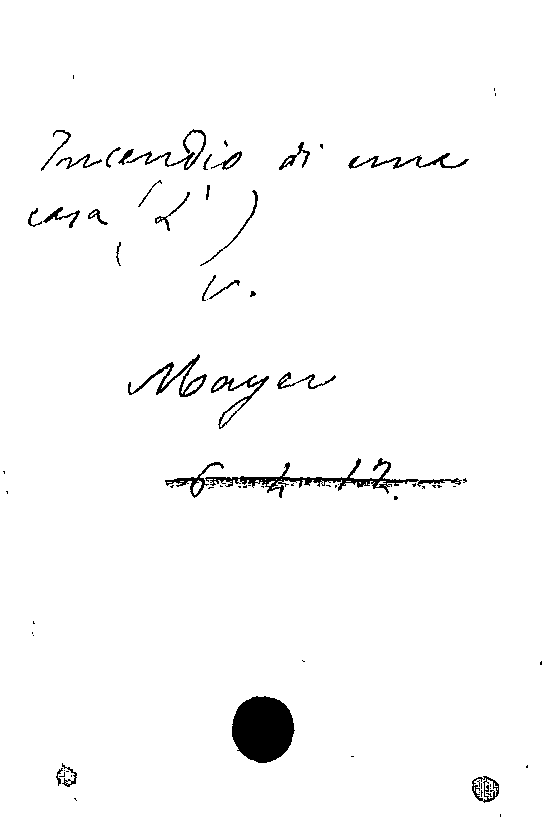 Incendio di una
casa (L')
v.
Mayer
6-4-12.